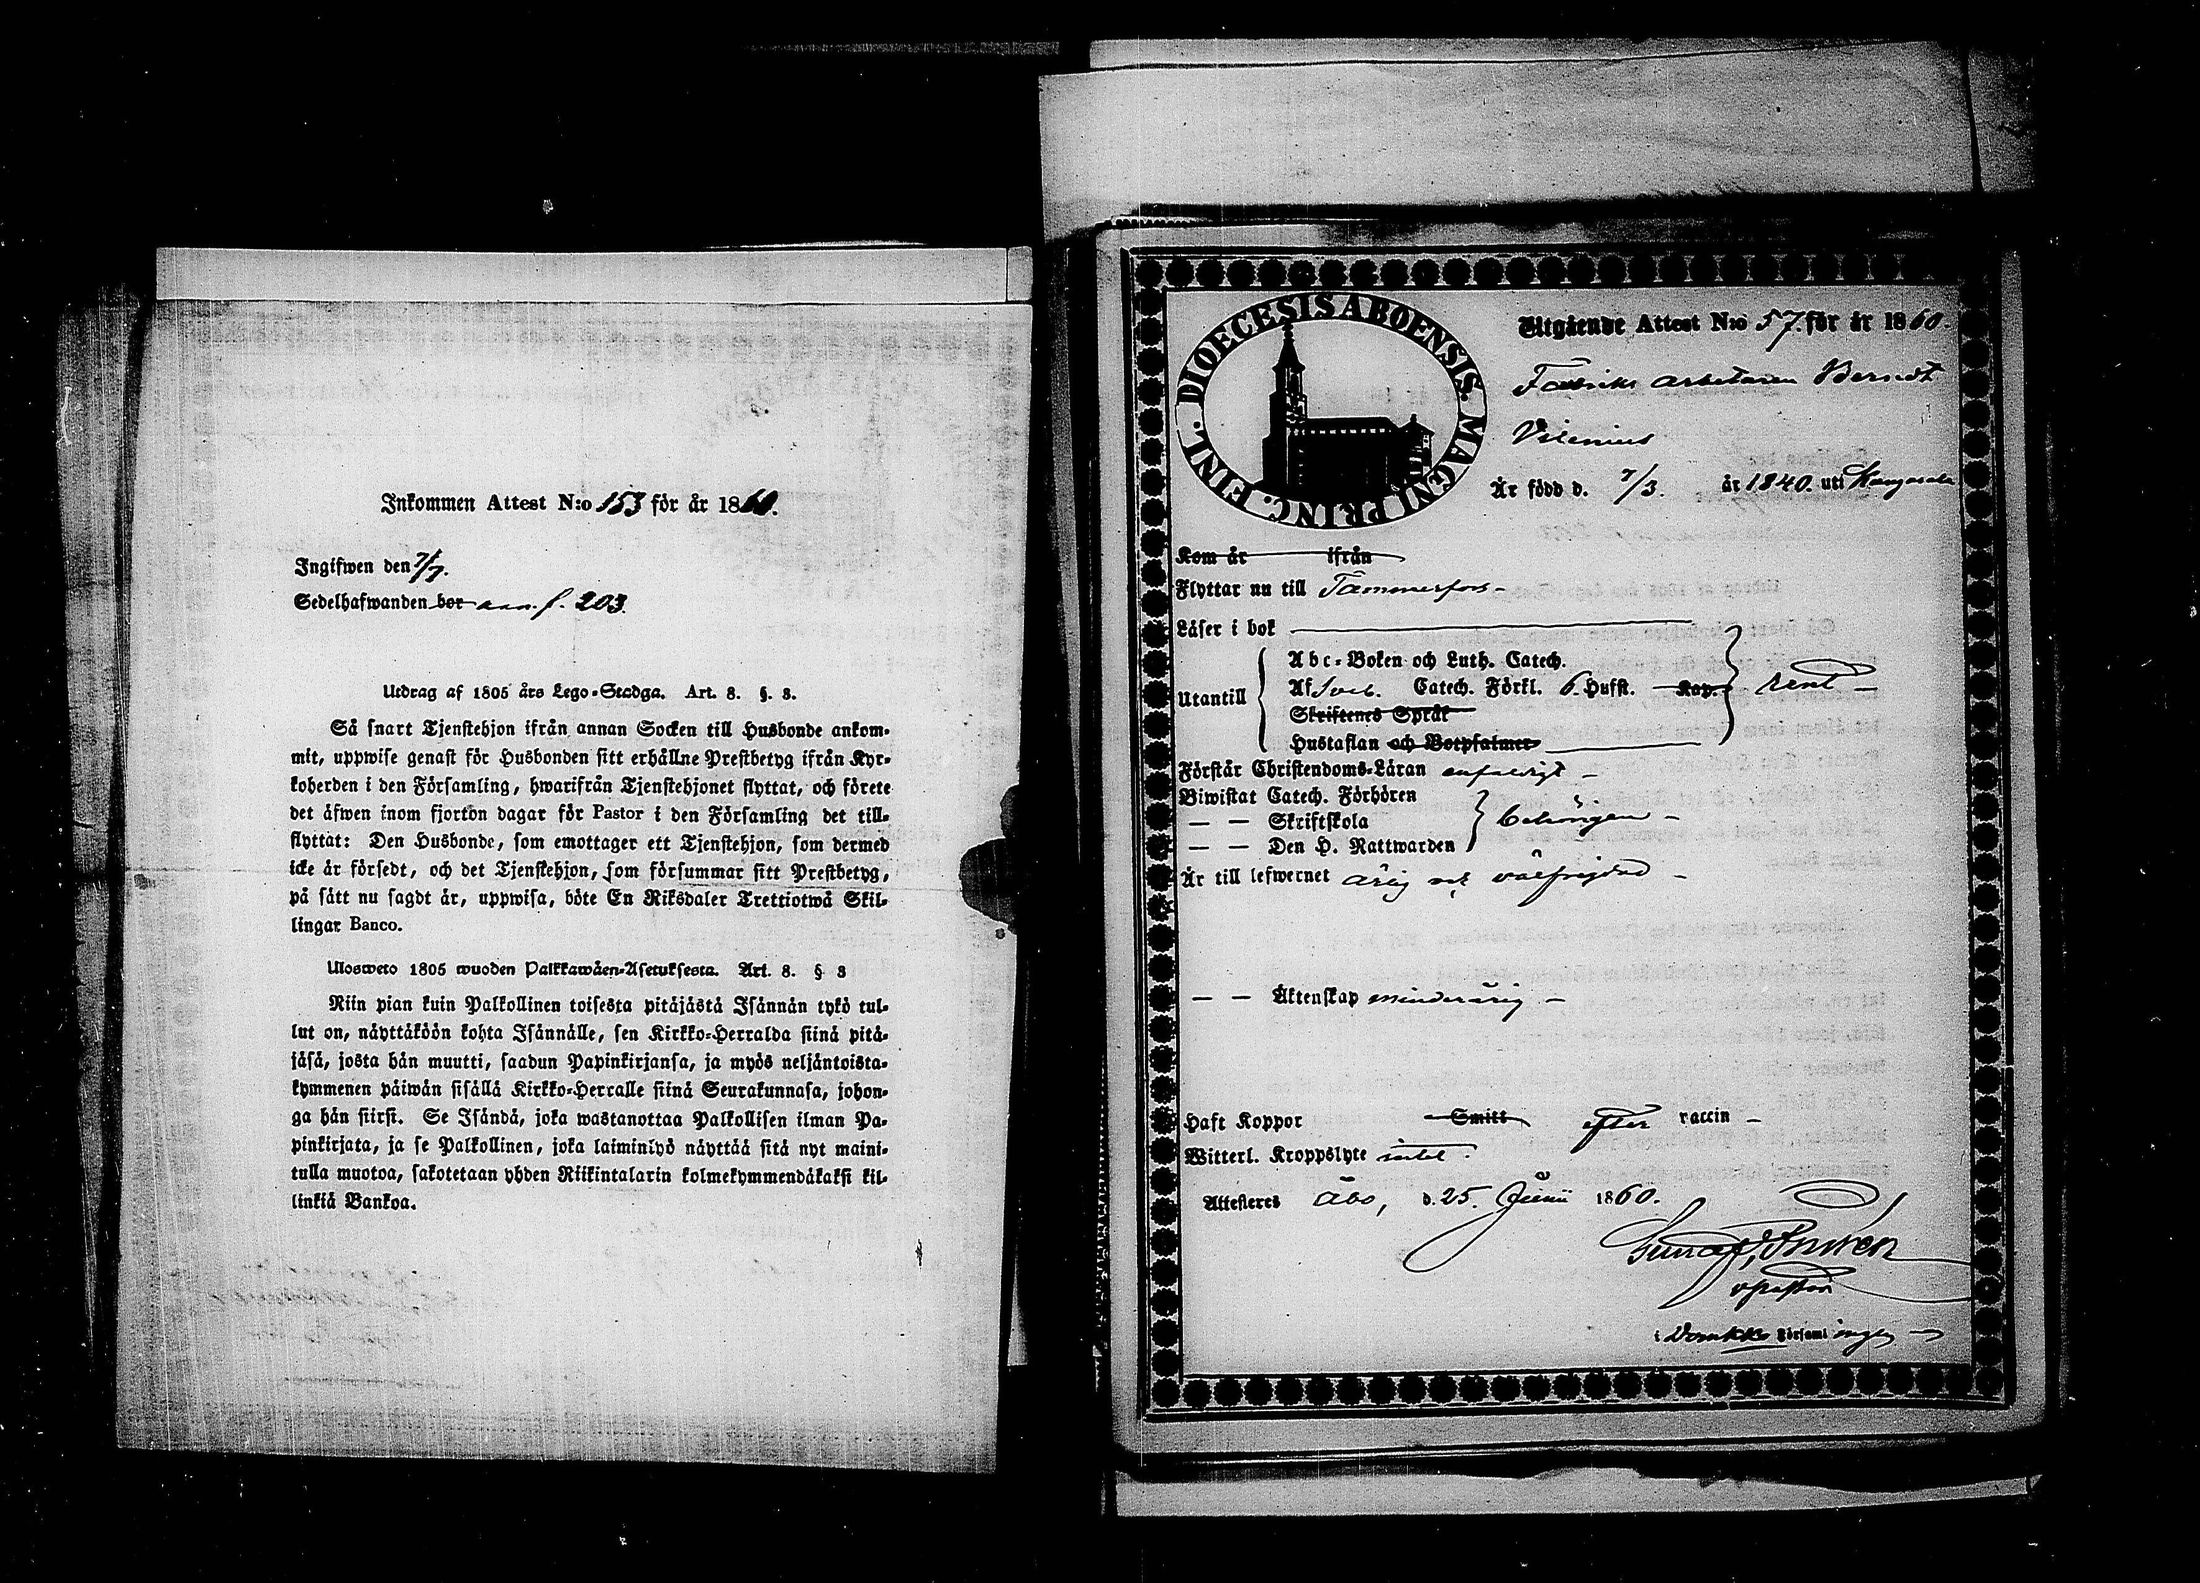 Inkommen Attest N:o 153 för år 1860.
Ingifwen den 7/7.
Sedelhafwanden bor ann. f. 203.
Utdrag af 1805 års Lego-Stadga. Art. 8. §. 8.
Så snart Tjenstehjon ifrån annan Socken till Husbonde ankom-
mit, uppwise genast för Husbonden sitt erhållne Prestbetyg ifrån Kyr-
koherden i den Församling, hwarifrån Tjenstehjonet flyttat, och förete
det äfwen inom fjorton dagar för Pastor i den Församling det till-
flyttat: Den Husbonde, som emottager ett Tjenstehjon, som dermed
icke är försedt, och det Tjenstehjon, som försummar sitt Prestbetyg,
på sätt nu sagdt är, uppwisa, böte En Riksdaler Trettiotwå Skil-
lingar Banco.
Ulosweto 1805 wuoden Palkkawäen-Asetuksesta. Art. 8. § 8
Niin pian kuin Palkollinen toisesta pitäjästä Isännän tykö tul-
lut on, näyttäköön kohta Isännälle, sen Kirkko-Herralda siinä pitä-
jäsä, josta hän muutti, saadun Papinkirjansa, ja myös neljäntoista-
kymmenen päiwän sisällä Kirkko-Herralle siinä Seurakunnasa, johon-
ga hän siirsi. Se Isändä, joka wastanottaa Palkollisen ilman Pa-
pinkirjata, ja se Palkollinen, joka laiminlyö näyttää sitä nyt maini-
tulla muotoa, sakotetaan yhden Riikintalarin kolmekymmendäkaksi kil-
linkiä Bankoa.
DIOECESIS ABOENSIS. MAGNI PRINC. FINL.
Utgående Attest N:o 57. för år 1860.
Fabriks arbetaren Berndt
Vilenius
Är född d. 7/3. år 1840. uti Kangasala
Kom år ifrån
Flyttar nu till Tammerfors -
Läser i bok
Abc-Boken och Luth. Catech.
Utantill Af Sveb. Catech. Förkl. 6 Hufst. Kap. rent -
Skriftenes Språk
Hustaflan och Botpsalmer
Förstår Christendoms-Läran enfaldigt -
Biwistat Catech. Förhören
— — Skriftskola behörigen -
— — Den H. Nattwarden
Är till lefwernet ärlig och välfrejdad -
— — Äktenskap minderårig -
Haft Koppor Smitt efter vaccin -
Witterl. Kroppslyte intet.
Attesteres Åbo, d. 25. Junii 1860.
v pastor
i Domkko Församlingen